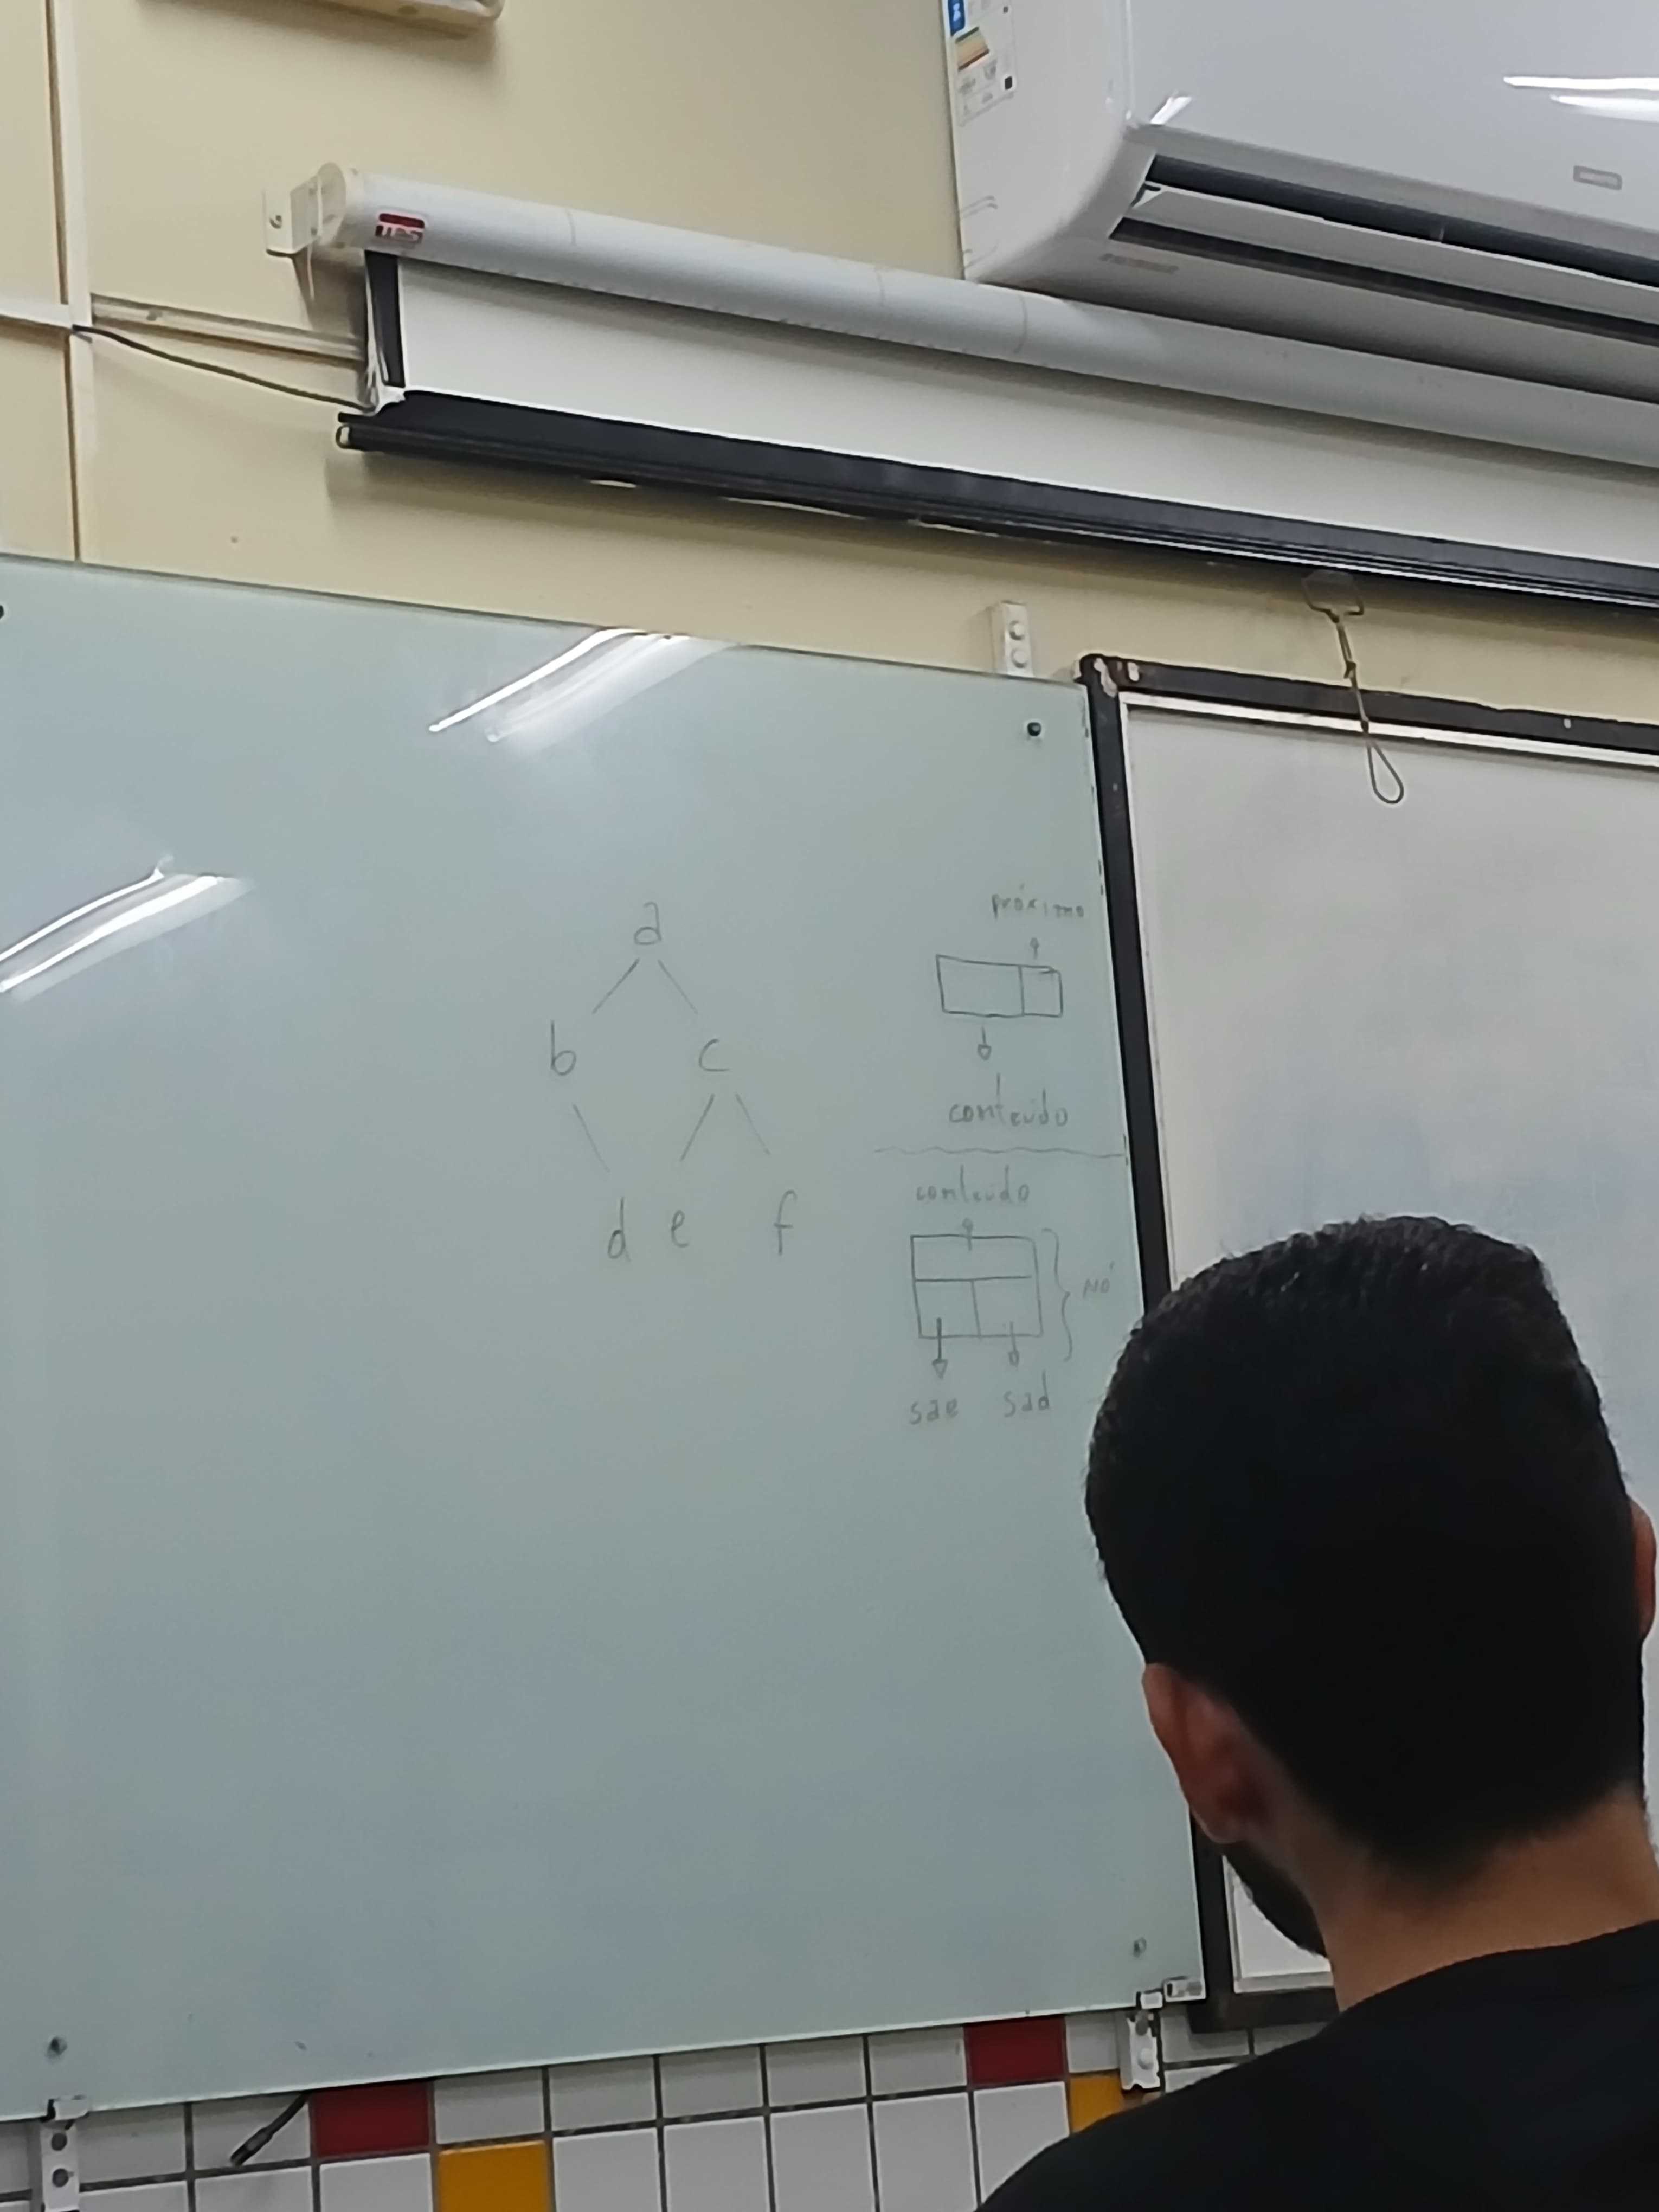 TES
a
b c
d e f
próximo
conteúdo
conteúdo
nó
sae sad